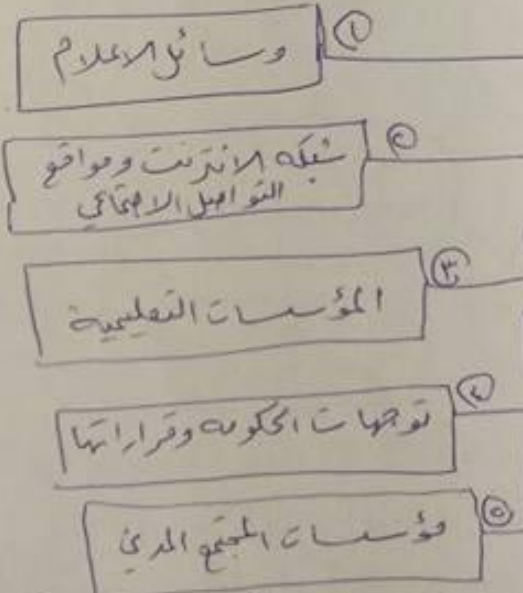 ١ وسائل الاعلام
٢ شبكه الانترنت ومواقع
التواصل الاجتماعي
٣ المؤسسات التعليمية
٤ توجهات الحكومه وقراراتها
٥ مؤسسات المجتمع المدني